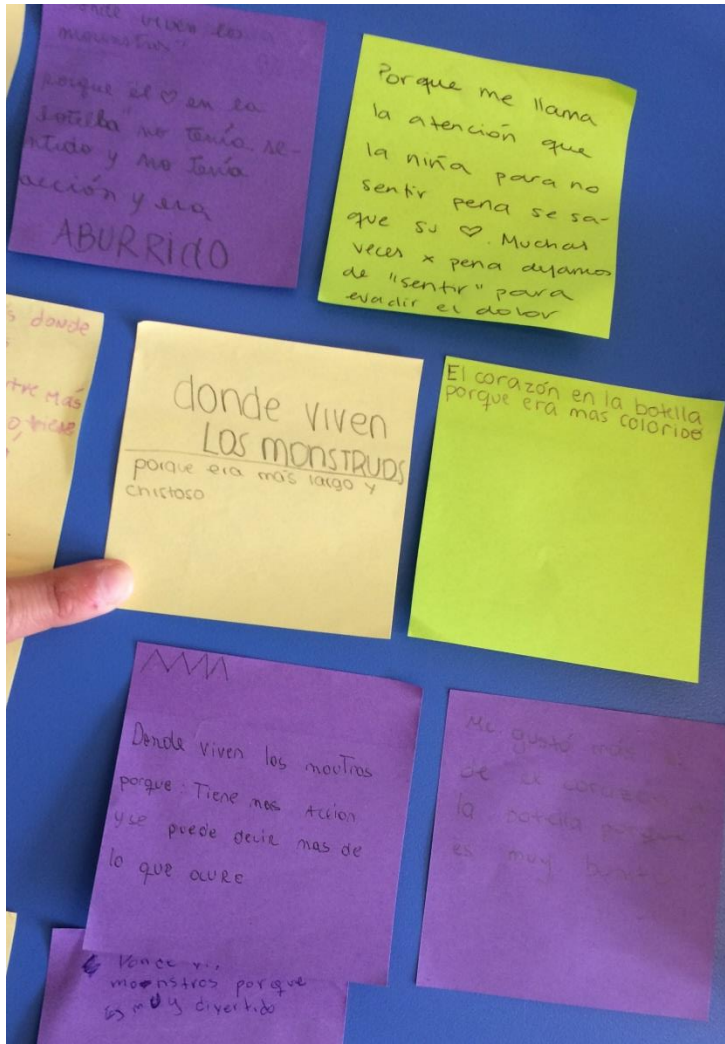 donde viven los
mounstros"
porque el ♡ en la
botella no tenía se-
ntido y no tenía
acción y era
ABURRIDO
Porque me llama
la atención que
la niña para no
sentir pena se sa-
que su ♡. Muchas
veces x pena dejamos
de "sentir" para
evadir el dolor
s donde
más
donde viven
LOS MONSTRUOS
porque era más largo y
chistoso
El corazón en la botella
porque era mas colorido
Donde viven los moutros
porque: Tiene mas accion
y se puede decir mas de
lo que ocure
Me gustó más el
de el corazón
la botella porque
es muy
moonstros porque
es muy divertido